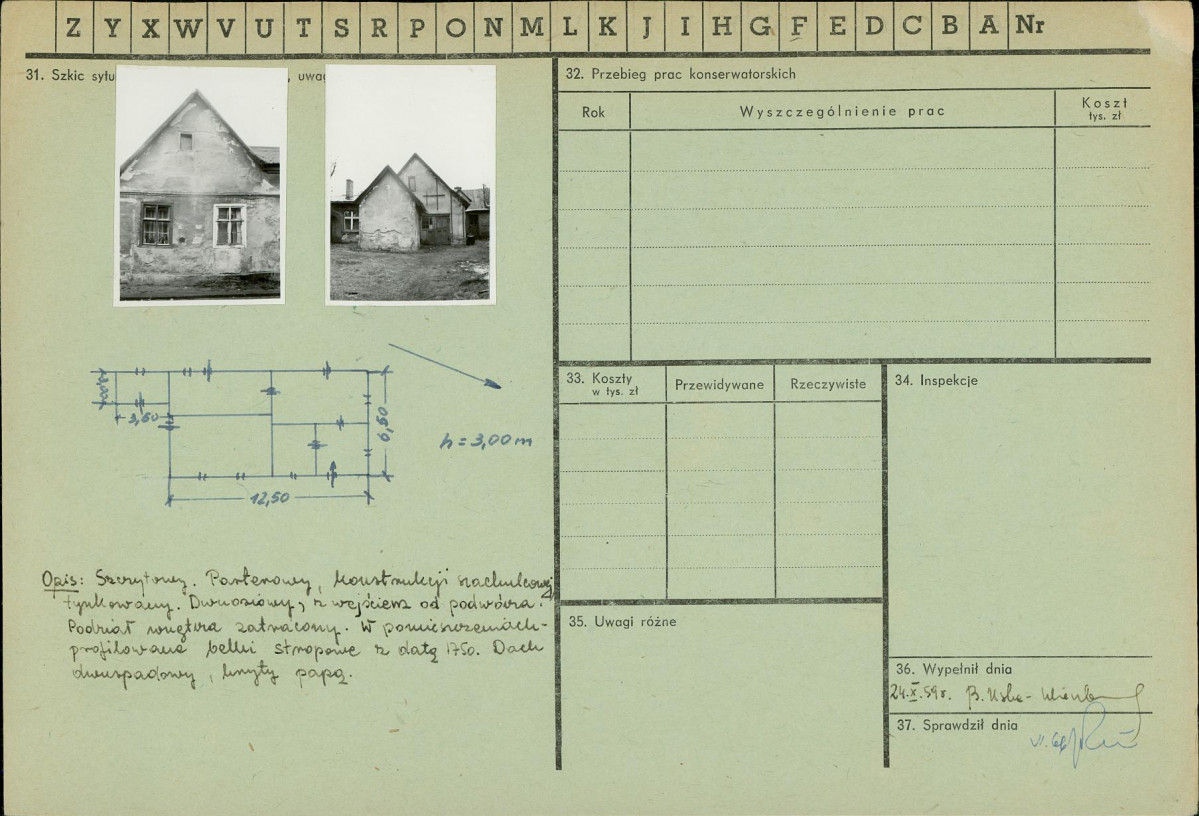 Z Y X W V U T S R P O N M L K J I H G F E D C B A Nr
31. Szkic sytu , uwa
32. Przebieg prac konserwatorskich
Rok Wyszczególnienie prac Koszt
tys. zł
3,50
6,50
12,50
h = 3,00 m
Opis: Szczytowy. Parterowy, konstrukcji szachulcowej
tynkowany. Dwuosiowy, z wejściem od podwórza.
Podział wnętrza zatracony. W pomieszczeniach-
profilowane belki stropowe z datą 1750. Dach
dwuspadowy, kryty papą.
33. Koszty
w tys. zł
Przewidywane Rzeczywiste
34. Inspekcje
35. Uwagi różne
36. Wypełnił dnia
24.X.59r. B.
37. Sprawdził dnia